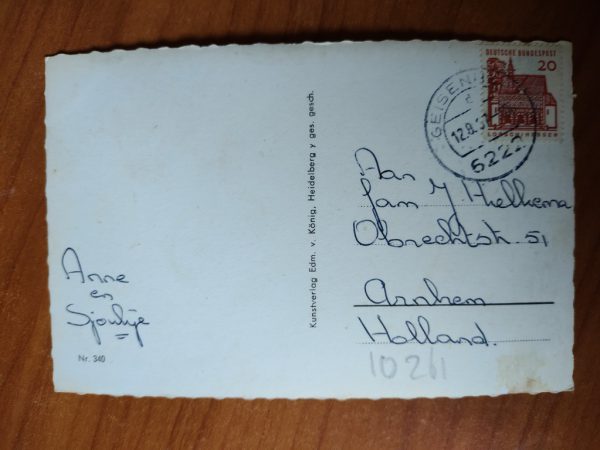 DEUTSCHE BUNDESPOST
20
LORSCH/HESSEN
GEISENH
12.8.
6222
Aan
fam J Hielkema
Obrechtstr. 51
Arnhem
Holland.
10261
Anne
en
Sjoukje
Nr. 340
Kunstverlag Edm. v. König, Heidelberg y ges. gesch.